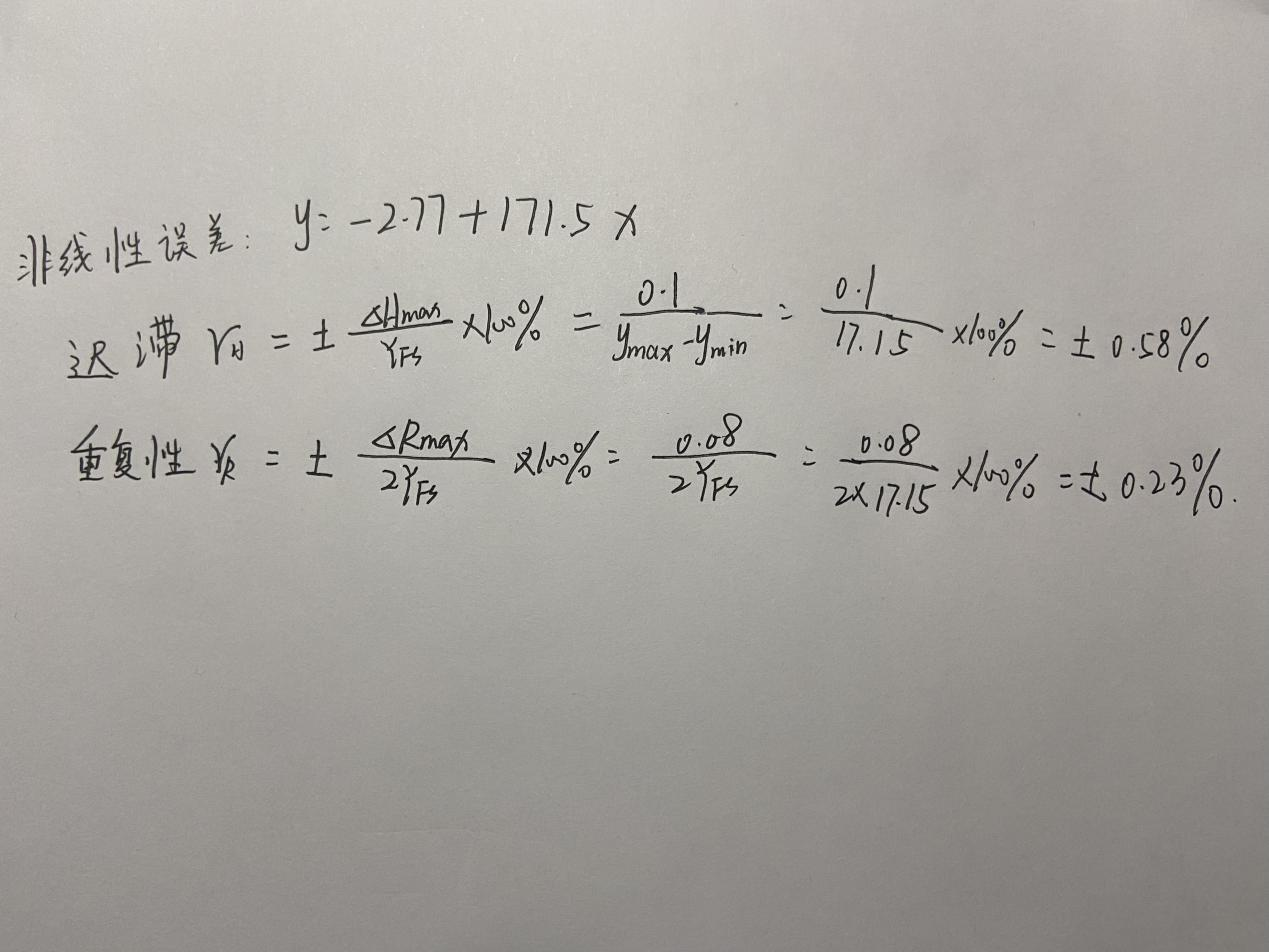 非线性误差: y= -2.77+171.5 x
迟滞 γH = ± ΔHmax/YFS ×100% = 0.1/ymax-ymin = 0.1/17.15 ×100% = ± 0.58%
重复性 γR = ± ΔRmax/2YFS ×100% = 0.08/2YFS = 0.08/2×17.15 ×100% = ± 0.23%.